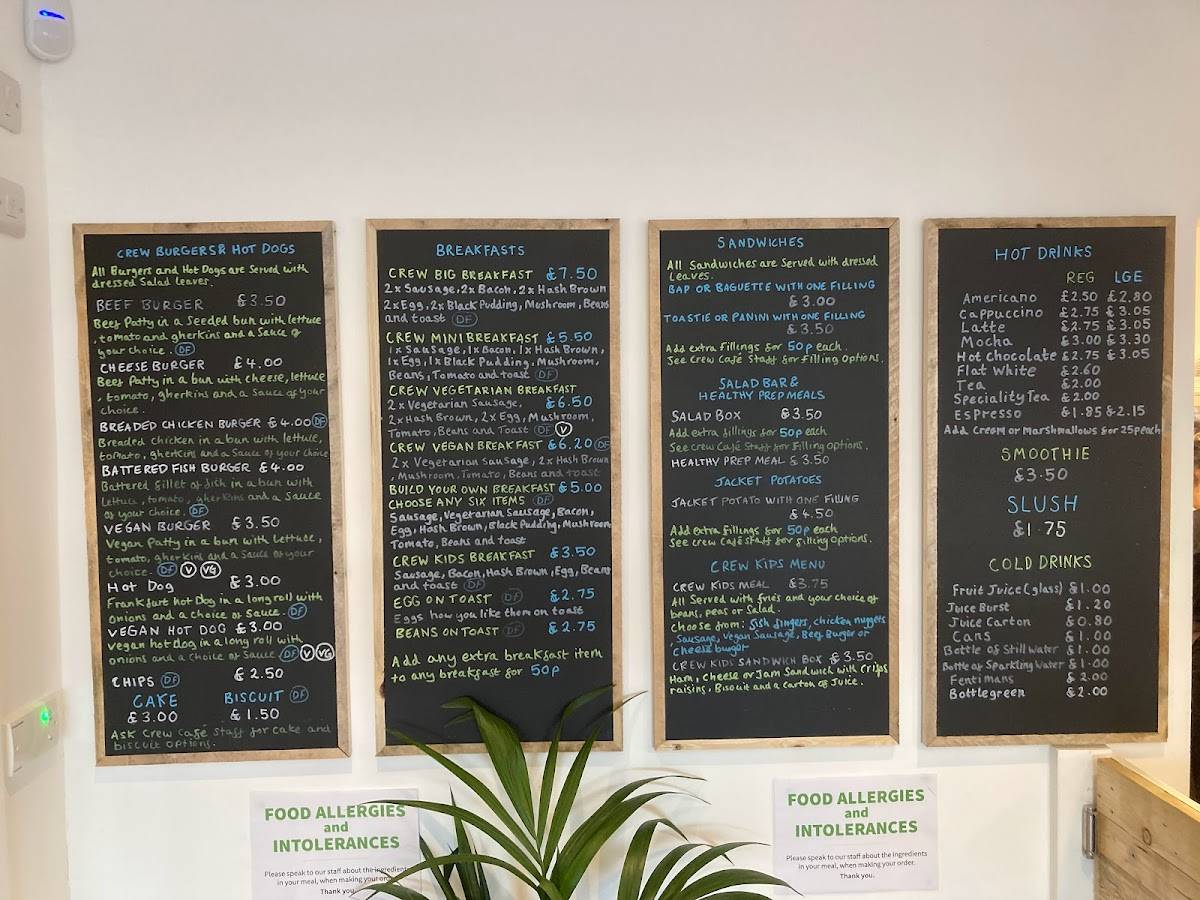 CREW BURGERS & HOT DOGS
All Burgers and Hot Dogs are Served with
dressed Salad leaves.
BEEF BURGER £3.50
Beef Patty in a Seeded bun with lettuce
, tomato and gherkins and a Sauce of
your choice. DF
CHEESE BURGER £4.00
Beef Patty in a bun with cheese, lettuce
, tomato, gherkins and a Sauce of your
choice.
BREADED CHICKEN BURGER £4.00 DF
Breaded chicken in a bun with lettuce,
tomato, gherkins and a Sauce of your choice
BATTERED FISH BURGER £4.00
Battered fillet of fish in a bun with
lettuce, tomato, gherkins and a Sauce
of your choice. DF
VEGAN BURGER £3.50
Vegan Patty in a bun with Lettuce,
tomato, gherkins and a Sauce of your
choice. DF V VG
HOT DOG £3.00
Frankfurt hot Dog in a long roll with
onions and a choice of Sauce. DF
VEGAN HOT DOG £3.00
Vegan hot Dog in a long roll with
onions and a choice of Sauce. DF V VG
CHIPS DF £2.50
CAKE BISCUIT DF
£3.00 £1.50
ASK Crew Café Staff for cake and
biscuit options.
BREAKFASTS
CREW BIG BREAKFAST £7.50
2 x Sausage, 2 x Bacon, 2 x Hash Brown
2 x Egg, 2 x Black Pudding, Mushroom, Beans
and toast DF
CREW MINI BREAKFAST £5.50
1 x Sausage, 1 x Bacon, 1 x Hash Brown,
1 x Egg, 1 x Black Pudding, Mushroom,
Beans, Tomato and toast DF
CREW VEGETARIAN BREAKFAST
2 x Vegetarian Sausage, £6.50
2 x Hash Brown, 2 x Egg, Mushroom,
Tomato, Beans and Toast DF V
CREW VEGAN BREAKFAST £6.20 DF
2 x Vegetarian Sausage, 2 x Hash Brown
, Mushroom, Tomato, Beans and toast
BUILD YOUR OWN BREAKFAST £5.00
CHOOSE ANY SIX ITEMS DF
Sausage, Vegetarian Sausage, Bacon,
Egg, Hash Brown, Black Pudding, Mushroom
Tomato, Beans and toast
CREW KIDS BREAKFAST £3.50
Sausage, Bacon, Hash Brown, Egg, Beans
and toast DF
EGG ON TOAST DF £2.75
Eggs how you like them on toast
BEANS ON TOAST DF £2.75
Add any extra breakfast item
to any breakfast for 50p
SANDWICHES
All Sandwiches are Served with dressed
Leaves.
BAP OR BAGUETTE WITH ONE FILLING
£3.00
TOASTIE OR PANINI WITH ONE FILLING
£3.50
Add extra fillings for 50p each.
See crew Café Staff for filling options.
SALAD BAR &
HEALTHY PREP MEALS
SALAD BOX £3.50
Add extra fillings for 50p each
See crew Café Staff for filling options.
HEALTHY PREP MEAL £3.50
JACKET POTATOES
JACKET POTATO WITH ONE FILLING
£4.50
Add extra fillings for 50p each
See crew Café Staff for filling options.
CREW KIDS MENU
CREW KIDS MEAL £3.75
All Served with fries and your choice of
beans, peas or Salad.
Choose from: fish fingers, chicken nuggets
Sausage, Vegan Sausage, Beef Burger or
cheese burger
CREW KIDS SANDWICH BOX £3.50
Ham, cheese or Jam Sandwich with crisps
raisins, Biscuit and a carton of Juice.
HOT DRINKS
REG LGE
Americano £2.50 £2.80
Cappuccino £2.75 £3.05
Latte £2.75 £3.05
Mocha £3.00 £3.30
Hot chocolate £2.75 £3.05
Flat White £2.60
Tea £2.00
Speciality Tea £2.00
Espresso £1.85 £2.15
Add Cream or Marshmallows for 25p each
SMOOTHIE
£3.50
SLUSH
£1.75
COLD DRINKS
Fruit Juice (glass) £1.00
Juice Burst £1.20
Juice Carton £0.80
Cans £1.00
Bottle of Still Water £1.00
Bottle of Sparkling Water £1.00
Fentimans £2.00
Bottlegreen £2.00
FOOD ALLERGIES
and
INTOLERANCES
Please speak to our staff about the ingredients
in your meal, when making your
Thank you.
FOOD ALLERGIES
and
INTOLERANCES
Please speak to our staff about the ingredients
in your meal, when making your order.
Thank you.